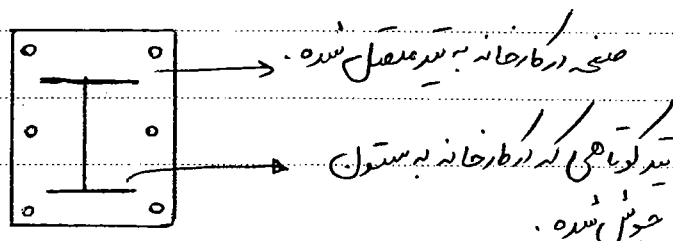 صفحه در کارخانه به تیر متصل شده.
تیر کوتاهی که در کارخانه به ستون
جوش شده.